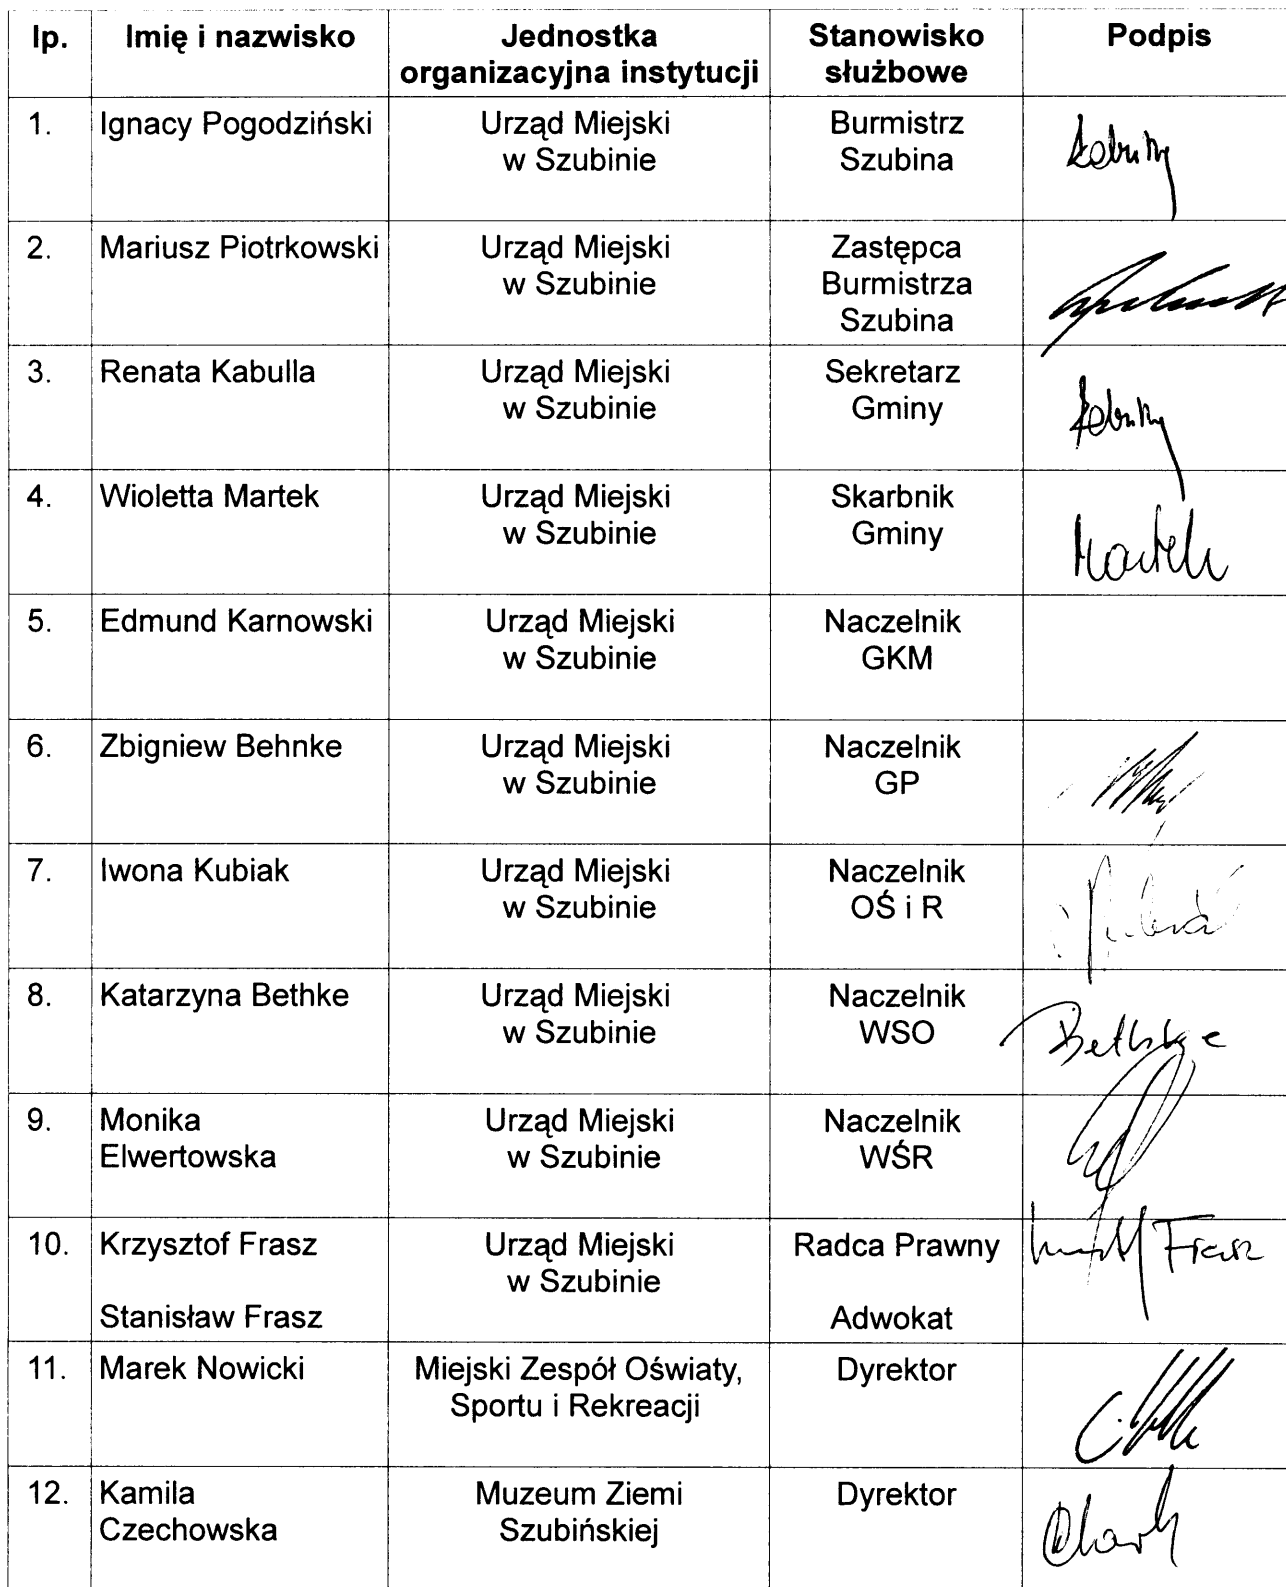 lp. Imię i nazwisko Jednostka organizacyjna instytucji Stanowisko służbowe Podpis
1. Ignacy Pogodziński Urząd Miejski w Szubinie Burmistrz Szubina
2. Mariusz Piotrkowski Urząd Miejski w Szubinie Zastępca Burmistrza Szubina
3. Renata Kabulla Urząd Miejski w Szubinie Sekretarz Gminy
4. Wioletta Martek Urząd Miejski w Szubinie Skarbnik Gminy Martek
5. Edmund Karnowski Urząd Miejski w Szubinie Naczelnik GKM
6. Zbigniew Behnke Urząd Miejski w Szubinie Naczelnik GP
7. Iwona Kubiak Urząd Miejski w Szubinie Naczelnik OŚ i R
8. Katarzyna Bethke Urząd Miejski w Szubinie Naczelnik WSO Bethke
9. Monika Elwertowska Urząd Miejski w Szubinie Naczelnik WŚR
10. Krzysztof Frasz Urząd Miejski w Szubinie Radca Prawny Frasz
Stanisław Frasz Adwokat
11. Marek Nowicki Miejski Zespół Oświaty, Sportu i Rekreacji Dyrektor
12. Kamila Czechowska Muzeum Ziemi Szubińskiej Dyrektor